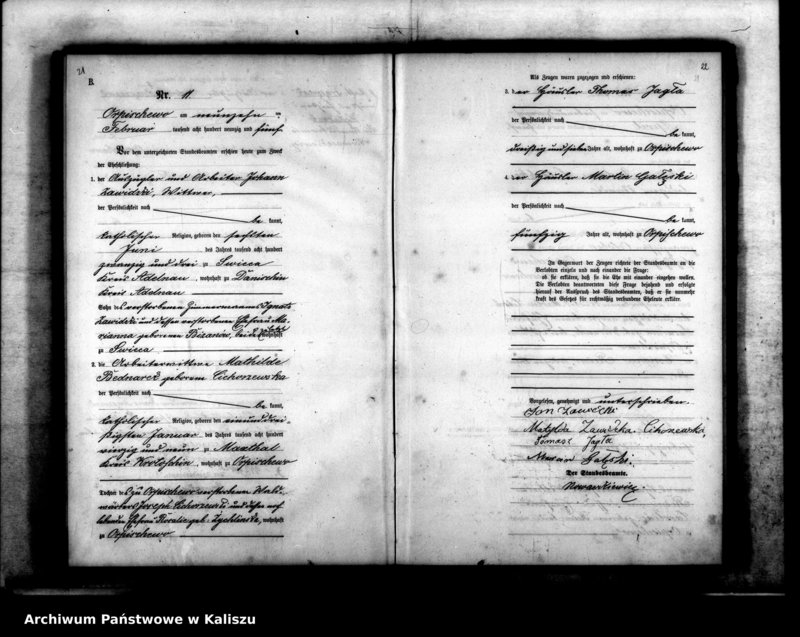 21
B.
Nr. 11
Ospischewo am neunzehn
Februar tausend acht hundert neunzig und fünf.
Vor dem unterzeichneten Standesbeamten erschien heute zum Zweck
der Eheschließung:
1. der Auszügler und Arbeiter Johann
Zawidzki, Wittwer,
der Persönlichkeit nach
be kannt,
katholischer Religion, geboren den sechsten
Juni des Jahres tausend acht hundert
zwanzig und drei zu Swieca
Kreis Adelnau, wohnhaft zu Danischin
Kreis Adelnau
Sohn des verstorbenen Zimmermanns Ignatz
Zawidzki und dessen verstorbenen Ehefrau Ma-
rianna geborenen
zu Swieca
2. die Arbeiterwittwe Mathilde
Bednarek geborene Cichoszewska
der Persönlichkeit nach
be kannt,
katholischer Religion, geboren den einunddrei-
ßigsten Januar des Jahres tausend acht hundert
vierzig und neun zu Maxthal
Kreis Krotoschin, wohnhaft zu Ospischewo
Tochter des zu Ospischewo verstorbenen Wald-
wärters Joseph Cichoszewski und dessen noch
lebenden Ehefrau Rosalie geb. Zychlinska, wohnhaft
zu Ospischewo
22
Als Zeugen waren zugezogen und erschienen:
3. der Häusler Thomas Jagła
der Persönlichkeit nach
be kannt,
dreißig und sieben Jahre alt, wohnhaft zu Ospischewo
4. der Häusler Martin Gałęski
der Persönlichkeit nach
be kannt,
fünfzig Jahre alt, wohnhaft zu Ospischewo
In Gegenwart der Zeugen richtete der Standesbeamte an die
Verlobten einzeln und nach einander die Frage:
ob sie erklären, daß sie die Ehe mit einander eingehen wollen.
Die Verlobten beantworteten diese Frage bejahend und erfolgte
hierauf der Ausspruch des Standesbeamten, daß er sie nunmehr
kraft des Gesetzes für rechtmäßig verbundene Eheleute erkläre.
Vorgelesen, genehmigt und unterschrieben.
Jan Zawidzki
Matylda Zawidzka, Cichoszewska,
Tomasz Jagła
Gałęski.
Der Standesbeamte.
Nowankiewicz.
Archiwum Państwowe w Kaliszu